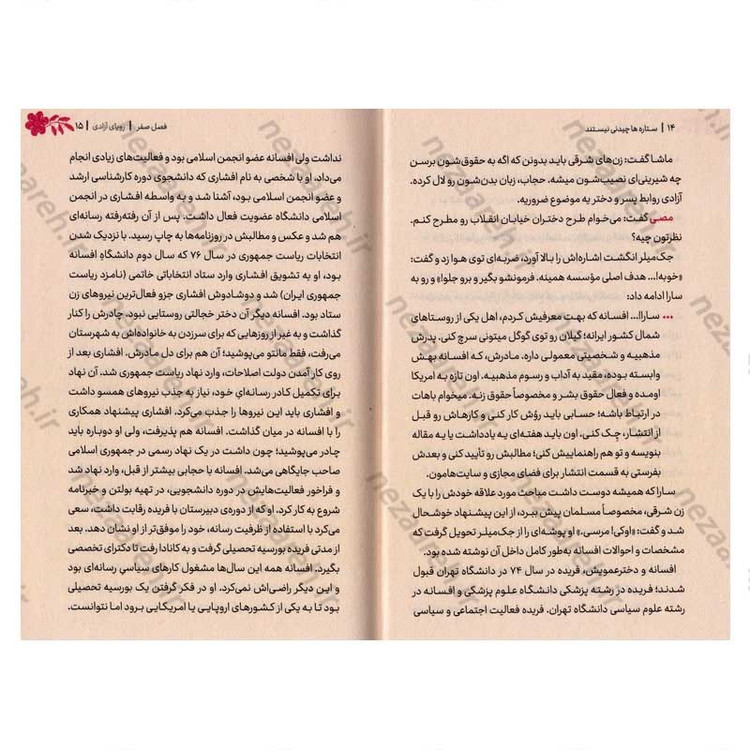 ۱۴ | ستاره ها چیدنی نیستند
ماشا گفت: زن‌های شرقی باید بدونن که اگه به حقوق‌شون برسن
چه شیرینی‌ای نصیب‌شون میشه. حجاب، زبان بدن‌شون رو لال کرده.
آزادی روابط پسر و دختر یه موضوع ضروریه.
مصی گفت: می‌خوام طرح دختران خیابان انقلاب رو مطرح کنم.
نظرتون چیه؟
جک‌میلر انگشت اشاره‌اش را بالا آورد، ضربه‌ای توی هوا زد و گفت:
«خوبه!... هدف اصلی مؤسسه همینه. فرمونشو بگیر و برو جلو!» و رو به
سارا ادامه داد:
••• سارا!... افسانه که بهت معرفیش کردم، اهل یکی از روستاهای
شمال کشور ایرانه؛ گیلان رو توی گوگل میتونی سرچ کنی. پدرش
مذهبیه و شخصیتی معمولی داره. مادرش، که افسانه بهش
وابسته بوده، مقید به آداب و رسوم مذهبیه. اون تازه به امریکا
اومده و فعال حقوق بشر و مخصوصاً حقوق زنه. میخوام باهات
در ارتباط باشه؛ حسابی باید رؤش کار کنی و کارهاش رو قبل
از انتشار، چک کنی. اون باید هفته‌ای یه یادداشت یا یه مقاله
بنویسه و تو هم راهنماییش کنی؛ مطالبش رو تأیید کنی و بعدش
بفرستی به قسمت انتشار برای فضای مجازی و سایت‌هامون.
سارا که همیشه دوست داشت مباحث مورد علاقه خودش را با یک
زن شرقی، مخصوصاً مسلمان پیش ببرد، از این پیشنهاد خوشحال
شد و گفت: «اوکی! مرسی.» او پوشه‌ای را از جک‌میلر تحویل گرفت که
مشخصات و احوالات افسانه به‌طور کامل داخل آن نوشته شده بود.
افسانه و دخترعمویش، فریده در سال ۷۴ در دانشگاه تهران قبول
شدند؛ فریده در رشته پزشکی دانشگاه علوم پزشکی و افسانه در
رشته علوم سیاسی دانشگاه تهران. فریده فعالیت اجتماعی و سیاسی
فصل صفر | رویای آزادی | ۱۵
نداشت ولی افسانه عضو انجمن اسلامی بود و فعالیت‌های زیادی انجام
می‌داد. او با شخصی به نام افشاری که دانشجوی دوره کارشناسی ارشد
و عضو انجمن اسلامی بود، آشنا شد و به واسطه افشاری در انجمن
اسلامی دانشگاه عضویت فعال داشت. پس از آن رفته‌رفته رسانه‌ای
هم شد و عکس و مطالبش در روزنامه‌ها به چاپ رسید. با نزدیک شدن
انتخابات ریاست جمهوری در سال ۷۶ که سال دوم دانشگاهِ افسانه
بود، او به تشویق افشاری وارد ستاد انتخاباتی خاتمی (نامزد ریاست
جمهوری ایران) شد و دوشادوش افشاری جزو فعال‌ترین نیروهای زن
ستاد بود. افسانه دیگر آن دختر خجالتی روستایی نبود. چادرش را کنار
گذاشت و به غیر از روزهایی که برای سرزدن به خانواده‌اش به شهرستان
می‌رفت، فقط مانتو می‌پوشید؛ آن هم برای دل مادرش. افشاری بعد از
روی کار آمدن دولت اصلاحات، وارد نهاد ریاست جمهوری شد. آن نهاد
برای تکمیل کادر رسانه‌ایِ خود، نیاز به جذب نیروهای همسو داشت
و افشاری باید این نیروها را جذب می‌کرد. افشاری پیشنهاد همکاری
را با افسانه در میان گذاشت. افسانه هم پذیرفت، ولی او دوباره باید
چادر می‌پوشید؛ چون داشت در یک نهاد رسمی در جمهوری اسلامی
صاحب جایگاهی می‌شد. افسانه با حجابی بیشتر از قبل، وارد نهاد شد
و فراخور فعالیت‌هایش در دوره دانشجویی، در تهیه بولتن و خبرنامه
شروع به کار کرد. او که از دوره‌ی دبیرستان با فریده رقابت داشت، سعی
می‌کرد با استفاده از ظرفیت رسانه، خود را موفق‌تر از او نشان دهد. بعد
از مدتی فریده بورسیه تحصیلی گرفت و به کانادا رفت تا دکترای تخصصی
بگیرد. افسانه همه این سال‌ها مشغول کارهای سیاسیِ رسانه‌ای بود
و این دیگر راضی‌اش نمی‌کرد. او در فکر گرفتن یک بورسیه تحصیلی
بود تا به یکی از کشورهای اروپایی یا آمریکایی برود اما نتوانست.
nezaareh.ir